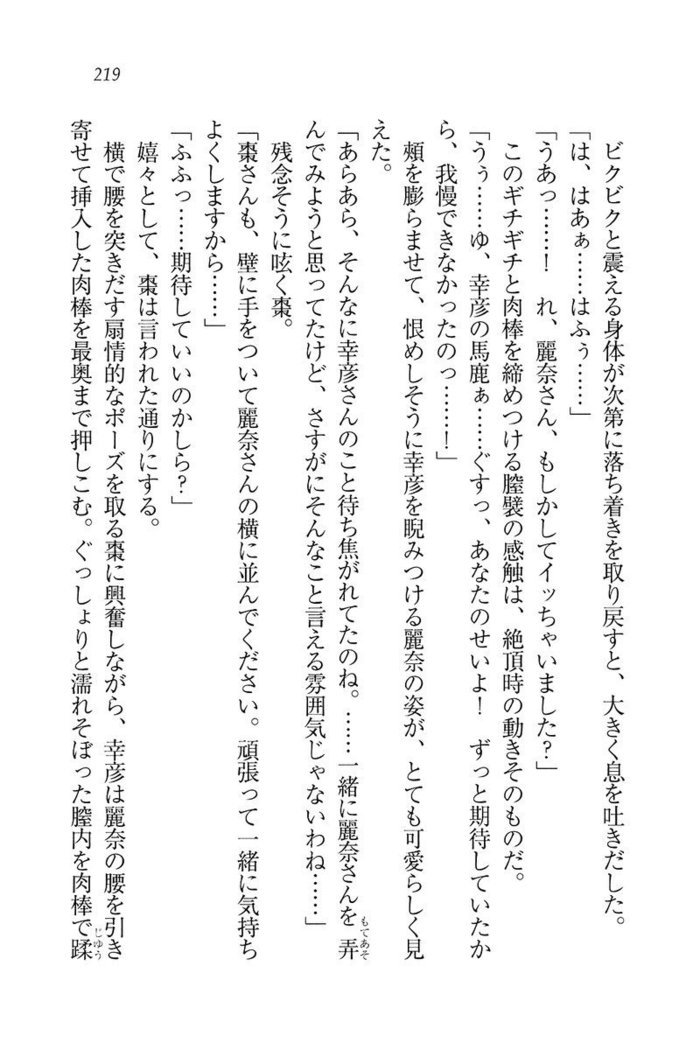 219
ビクビクと震える身体が次第に落ち着きを取り戻すと、大きく息を吐きだした。
「は、はあぁ……はふぅ……」
「うあっ……！　れ、麗奈さん、もしかしてイッちゃいました？」
このギチギチと肉棒を締めつける膣襞の感触は、絶頂時の動きそのものだ。
「うぅ……ゆ、幸彦の馬鹿ぁ……ぐすっ、あなたのせいよ！　ずっと期待していたか
ら、我慢できなかったのっ……！」
頬を膨らませて、恨めしそうに幸彦を睨みつける麗奈の姿が、とても可愛らしく見
えた。
「あらあら、そんなに幸彦さんのこと待ち焦がれてたのね。……一緒に麗奈さんを弄もてあそ
んでみようと思ってたけど、さすがにそんなこと言える雰囲気じゃないわね……」
残念そうに呟く棗。
「棗さんも、壁に手をついて麗奈さんの横に並んでください。頑張って一緒に気持ち
よくしますから……」
「ふふっ……期待していいのかしら？」
嬉々として、棗は言われた通りにする。
横で腰を突きだす扇情的なポーズを取る棗に興奮しながら、幸彦は麗奈の腰を引き
寄せて挿入した肉棒を最奥まで押しこむ。ぐっしょりと濡れそぼった膣内を肉棒で蹂じゅう